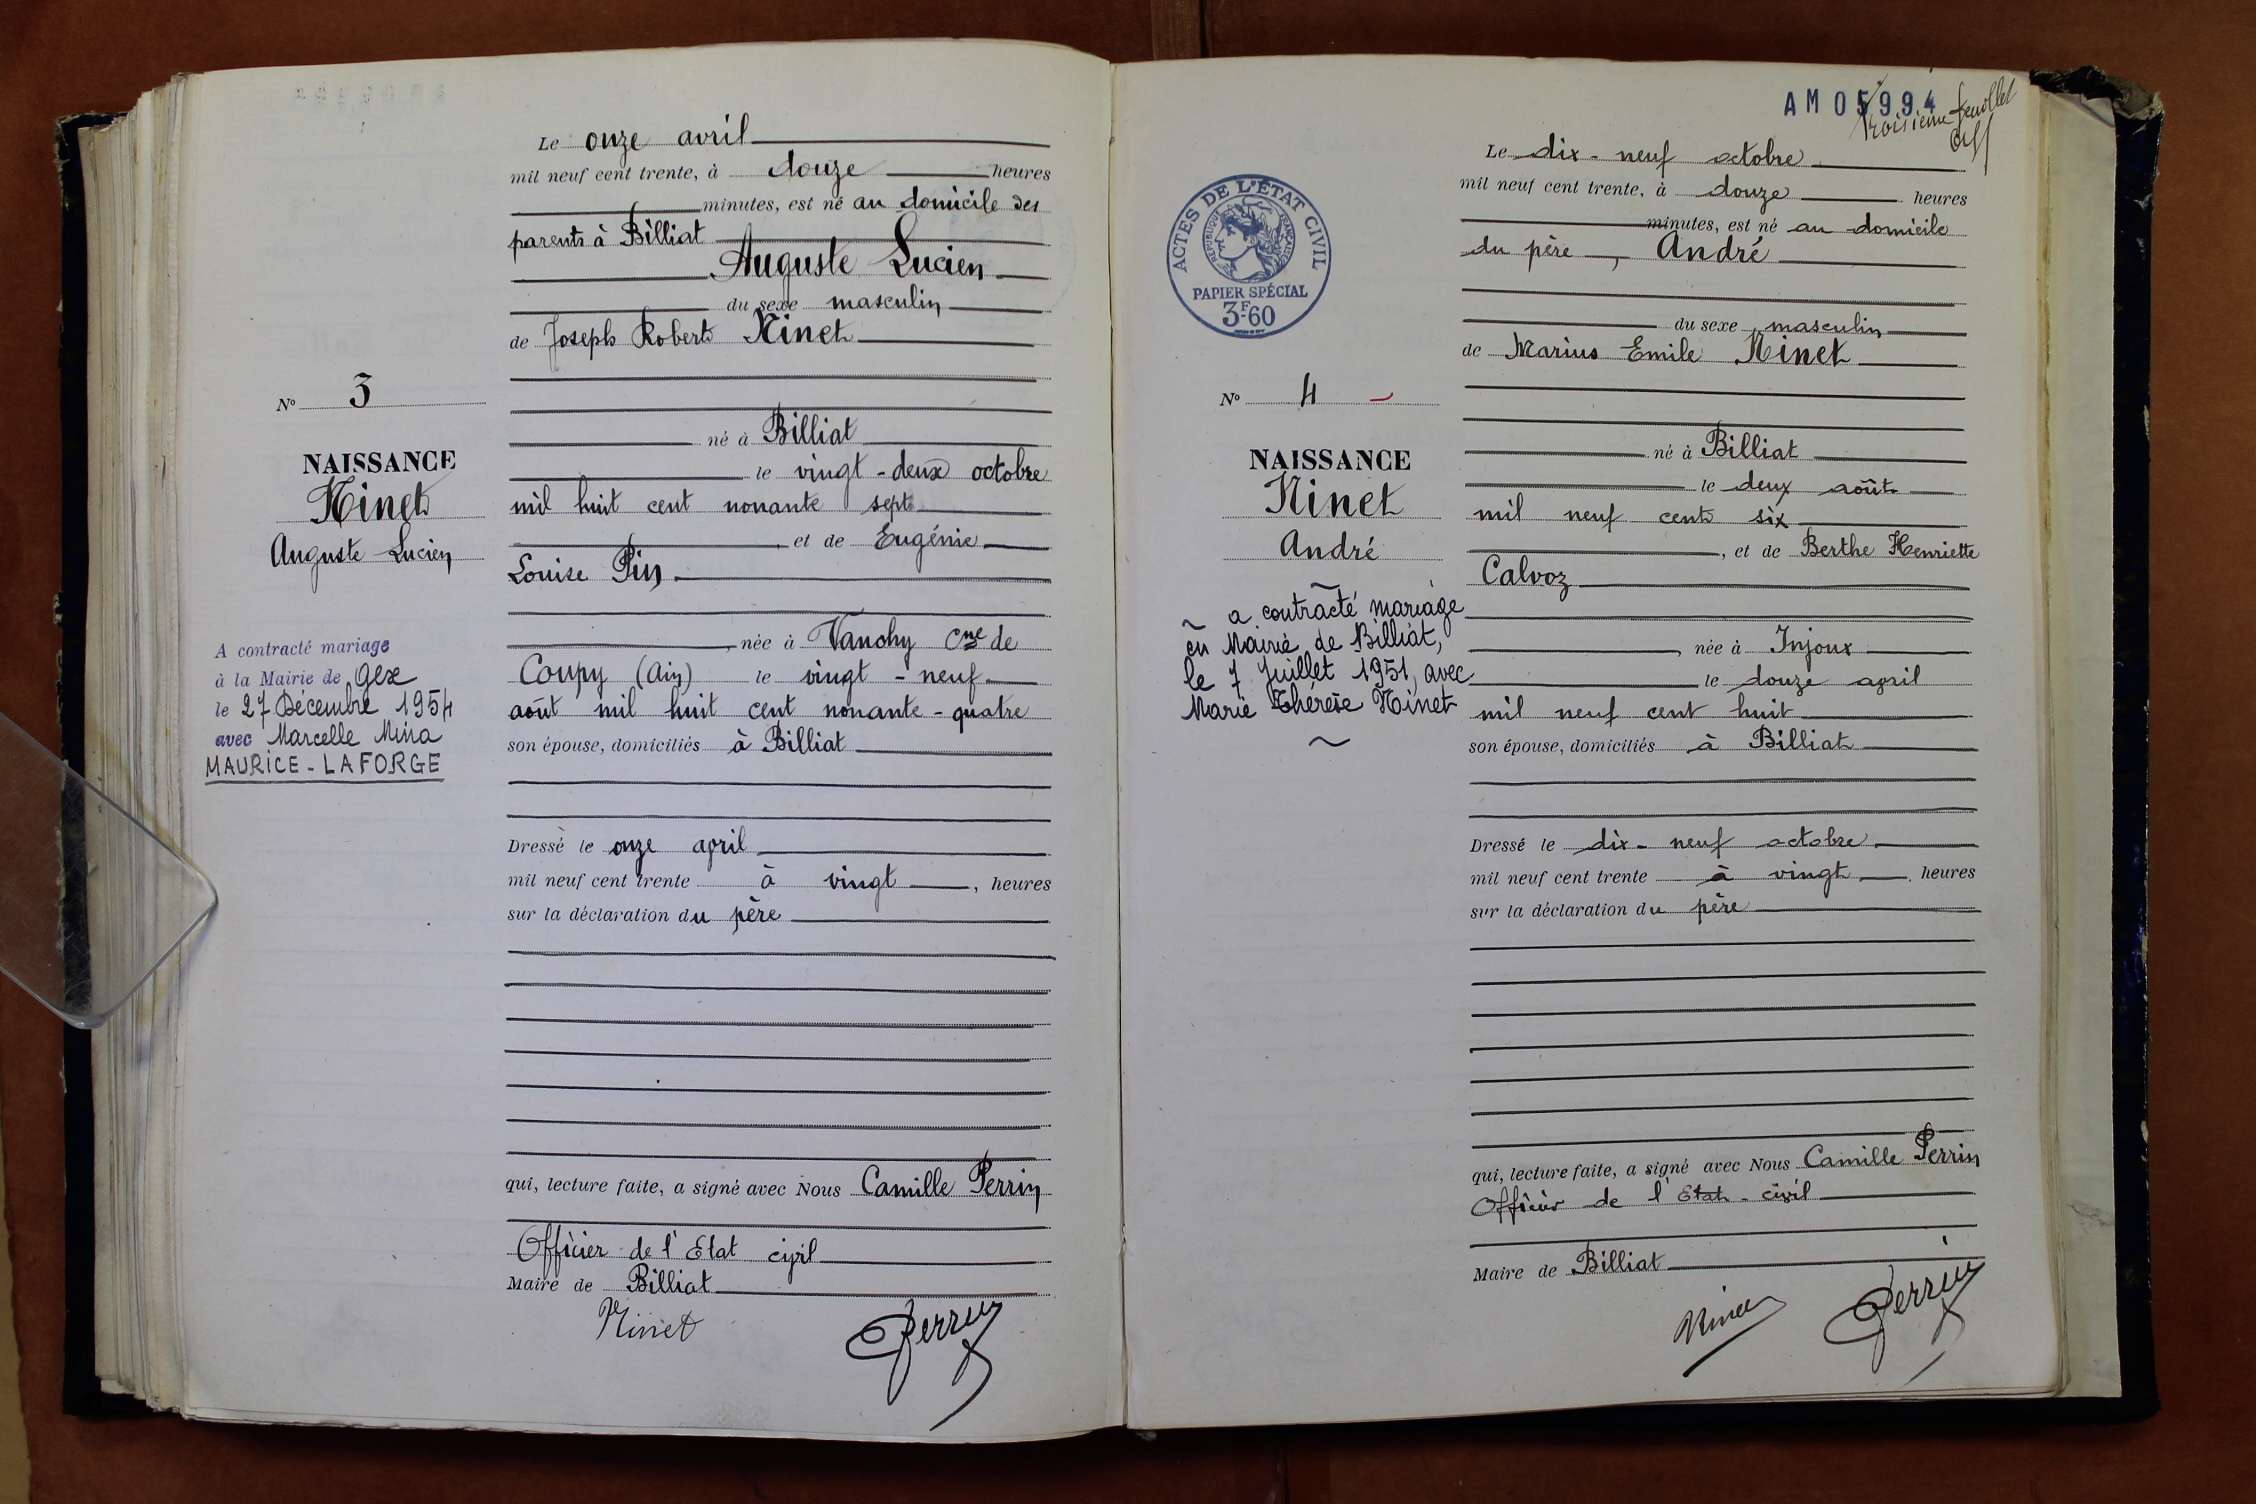 Le onze avril
mil neuf cent trente, à douze heures
minutes, est né au domicile des
parents à Billiat
Auguste Lucien
du sexe masculin
de Joseph Robert Ninet
né à Billiat
le vingt-deux octobre
mil huit cent nonante sept
, et de Eugénie
Louise Pin
, née à Vanchy Cne de
Coupy (Ain) le vingt-neuf
août mil huit cent nonante-quatre
son épouse, domiciliés à Billiat
Dressé le onze april
mil neuf cent trente à vingt, heures
sur la déclaration du père
qui, lecture faite, a signé avec Nous Camille Perrin
Officier de l'Etat civil
Maire de Billiat
Ninet
Perrin
No 3
NAISSANCE
Ninet
Auguste Lucien
A contracté mariage
à la Mairie de Gex
le 27 Décembre 1954
avec Marcelle Mina
MAURICE-LAFORGE
AM 05994
Troisième feuillet
Le dix-neuf octobre
mil neuf cent trente, à douze heures
minutes, est né au domicile
du père, André
du sexe masculin
de Marius Emile Ninet
né à Billiat
le deux août
mil neuf cent six
, et de Berthe Henriette
Calvoz
, née à Injoux
le douze april
mil neuf cent huit
son épouse, domiciliés à Billiat
Dressé le dix-neuf octobre
mil neuf cent trente à vingt heures
sur la déclaration du père
qui, lecture faite, a signé avec Nous Camille Perrin
Officier de l'Etat-civil
Maire de Billiat
Ninet
Perrin
ACTES DE L'ÉTAT CIVIL
RÉPUBLIQUE FRANÇAISE
PAPIER SPÉCIAL
3F60
No 4
NAISSANCE
Ninet
André
a contracté mariage
en Mairie de Billiat,
le 7 Juillet 1951, avec
Marie Thérèse Ninet